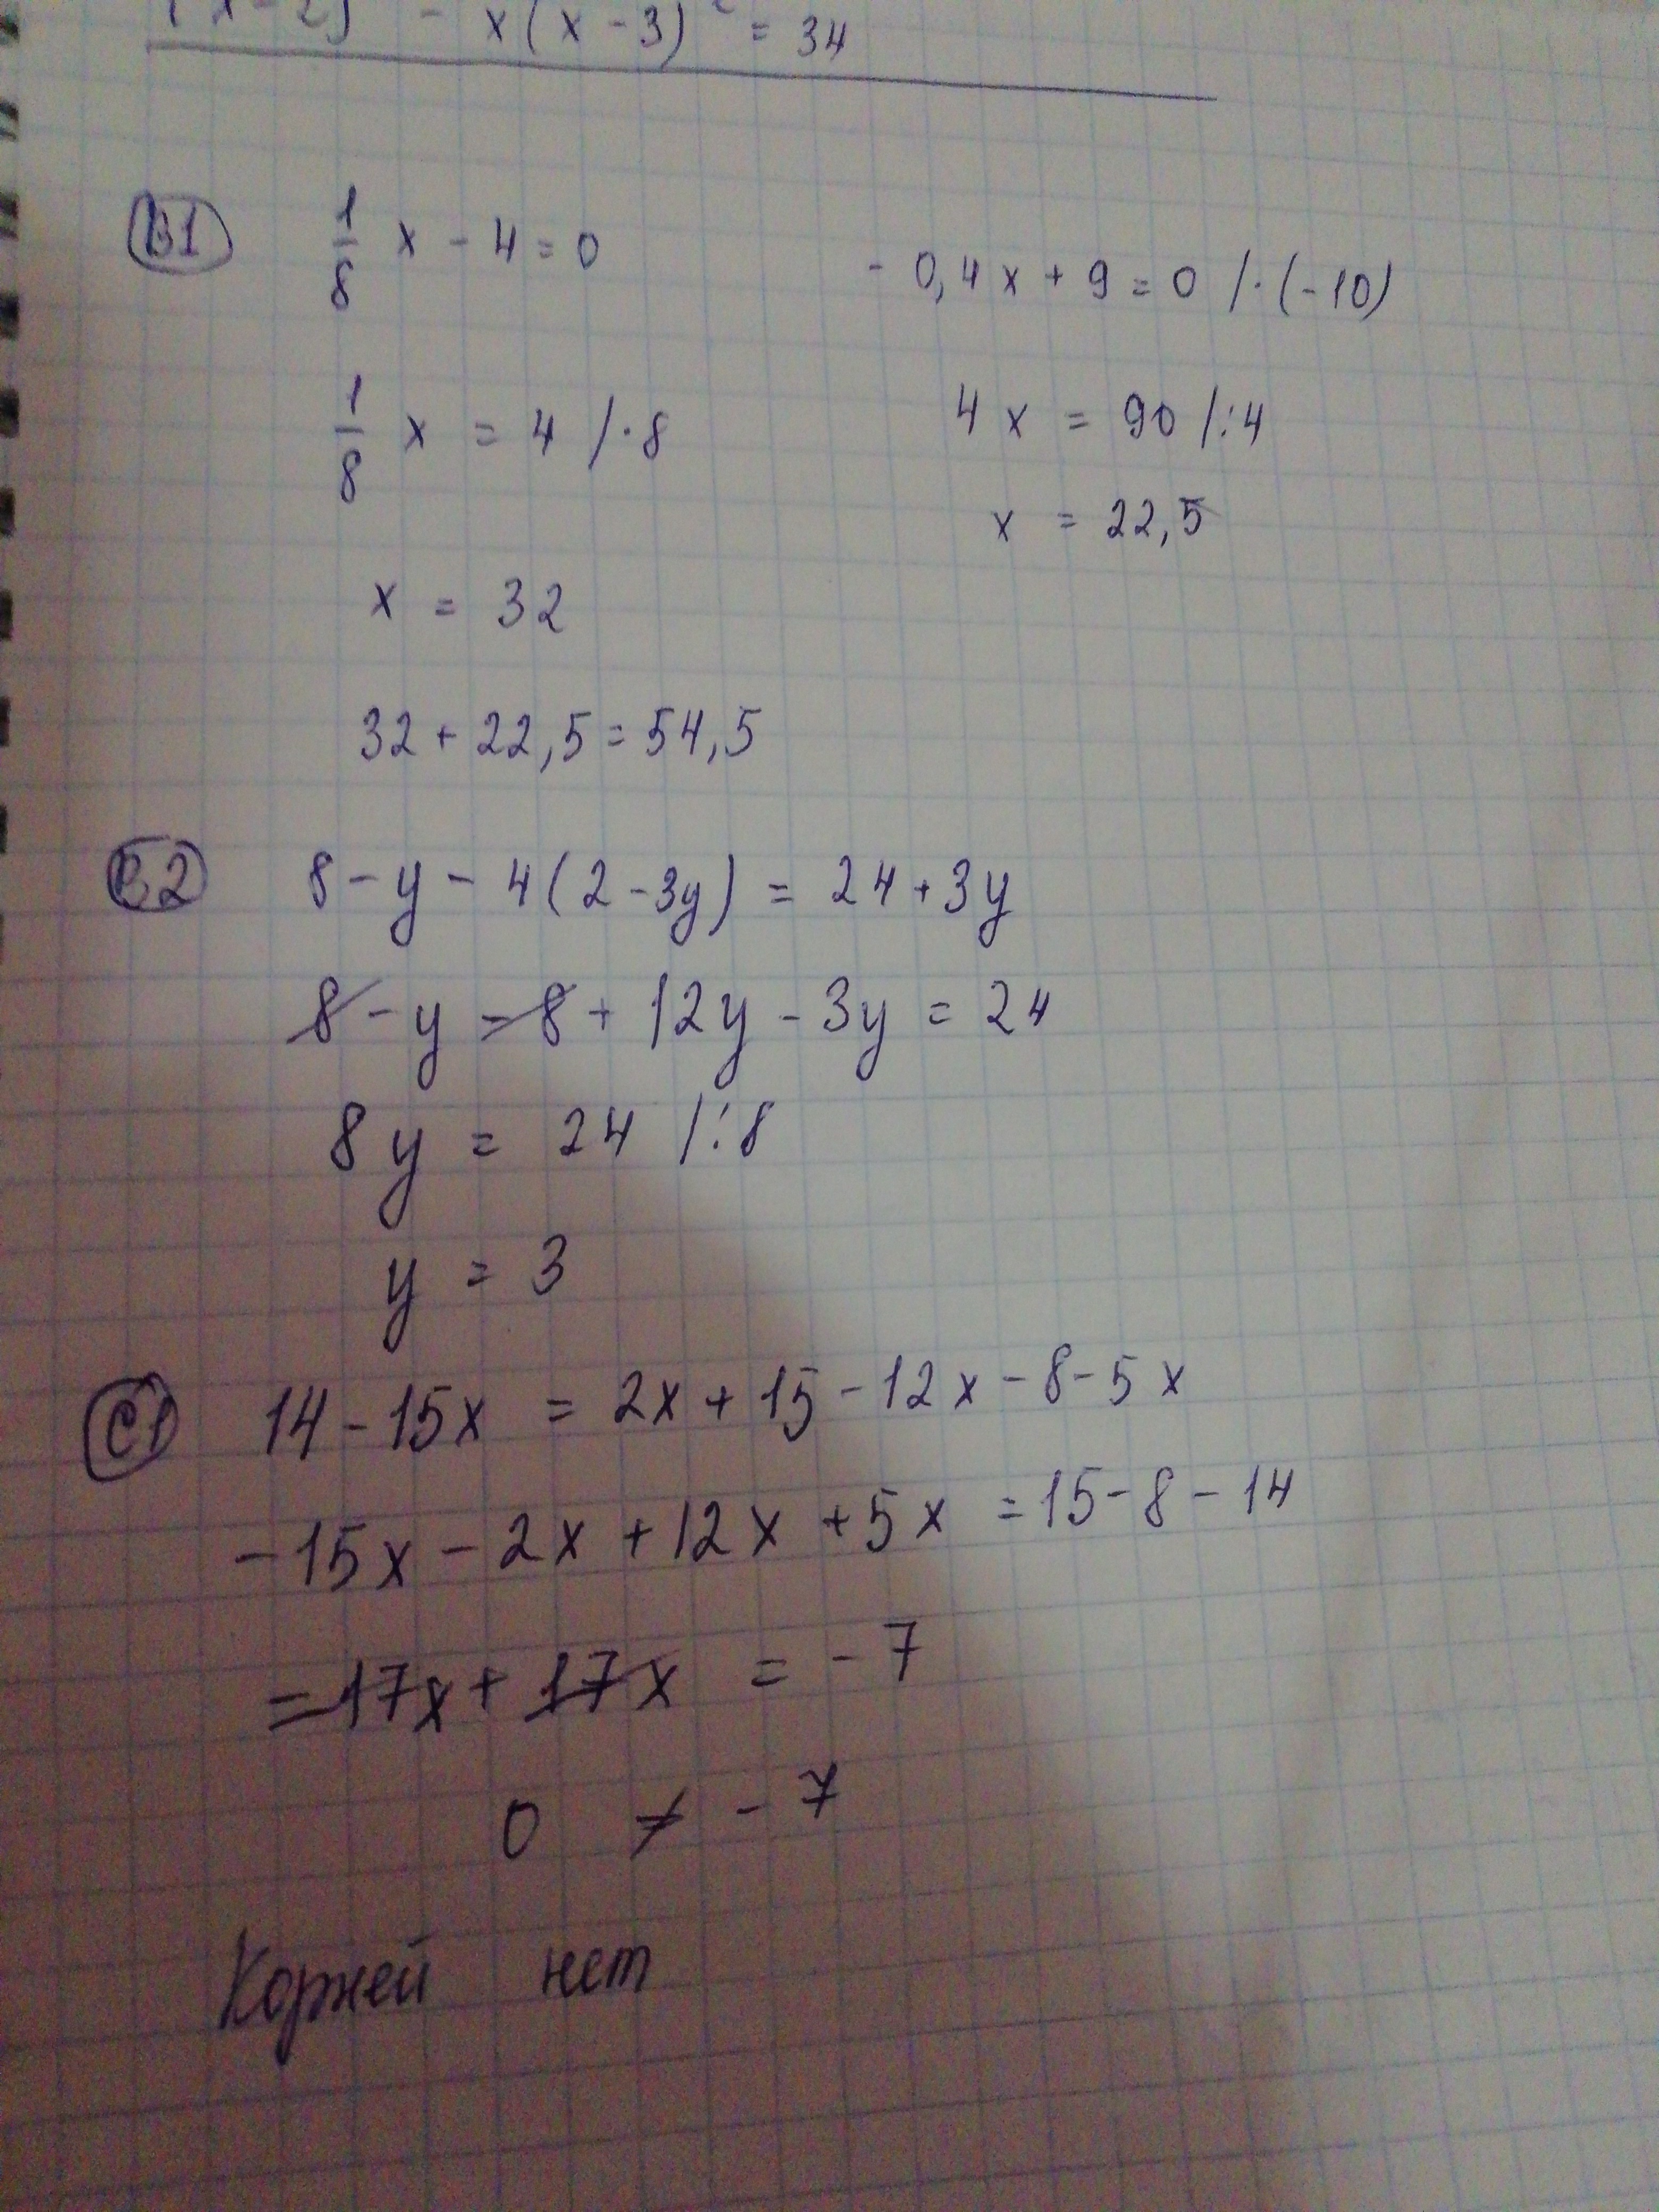 x - 2) - x(x - 3)² = 34
B1 1/8 x - 4 = 0
- 0,4x + 9 = 0 /·(-10)
1/8 x = 4 /·8
4x = 90 /:4
x = 22,5
x = 32
32 + 22,5 = 54,5
B2 8 - y - 4(2 - 3y) = 24 + 3y
8 - y - 8 + 12y - 3y = 24
8y = 24 /:8
y = 3
C1 14 - 15x = 2x + 15 - 12x - 8 - 5x
-15x - 2x + 12x + 5x = 15 - 8 - 14
-17x + 17x = -7
0 ≠ -7
Коржей нет